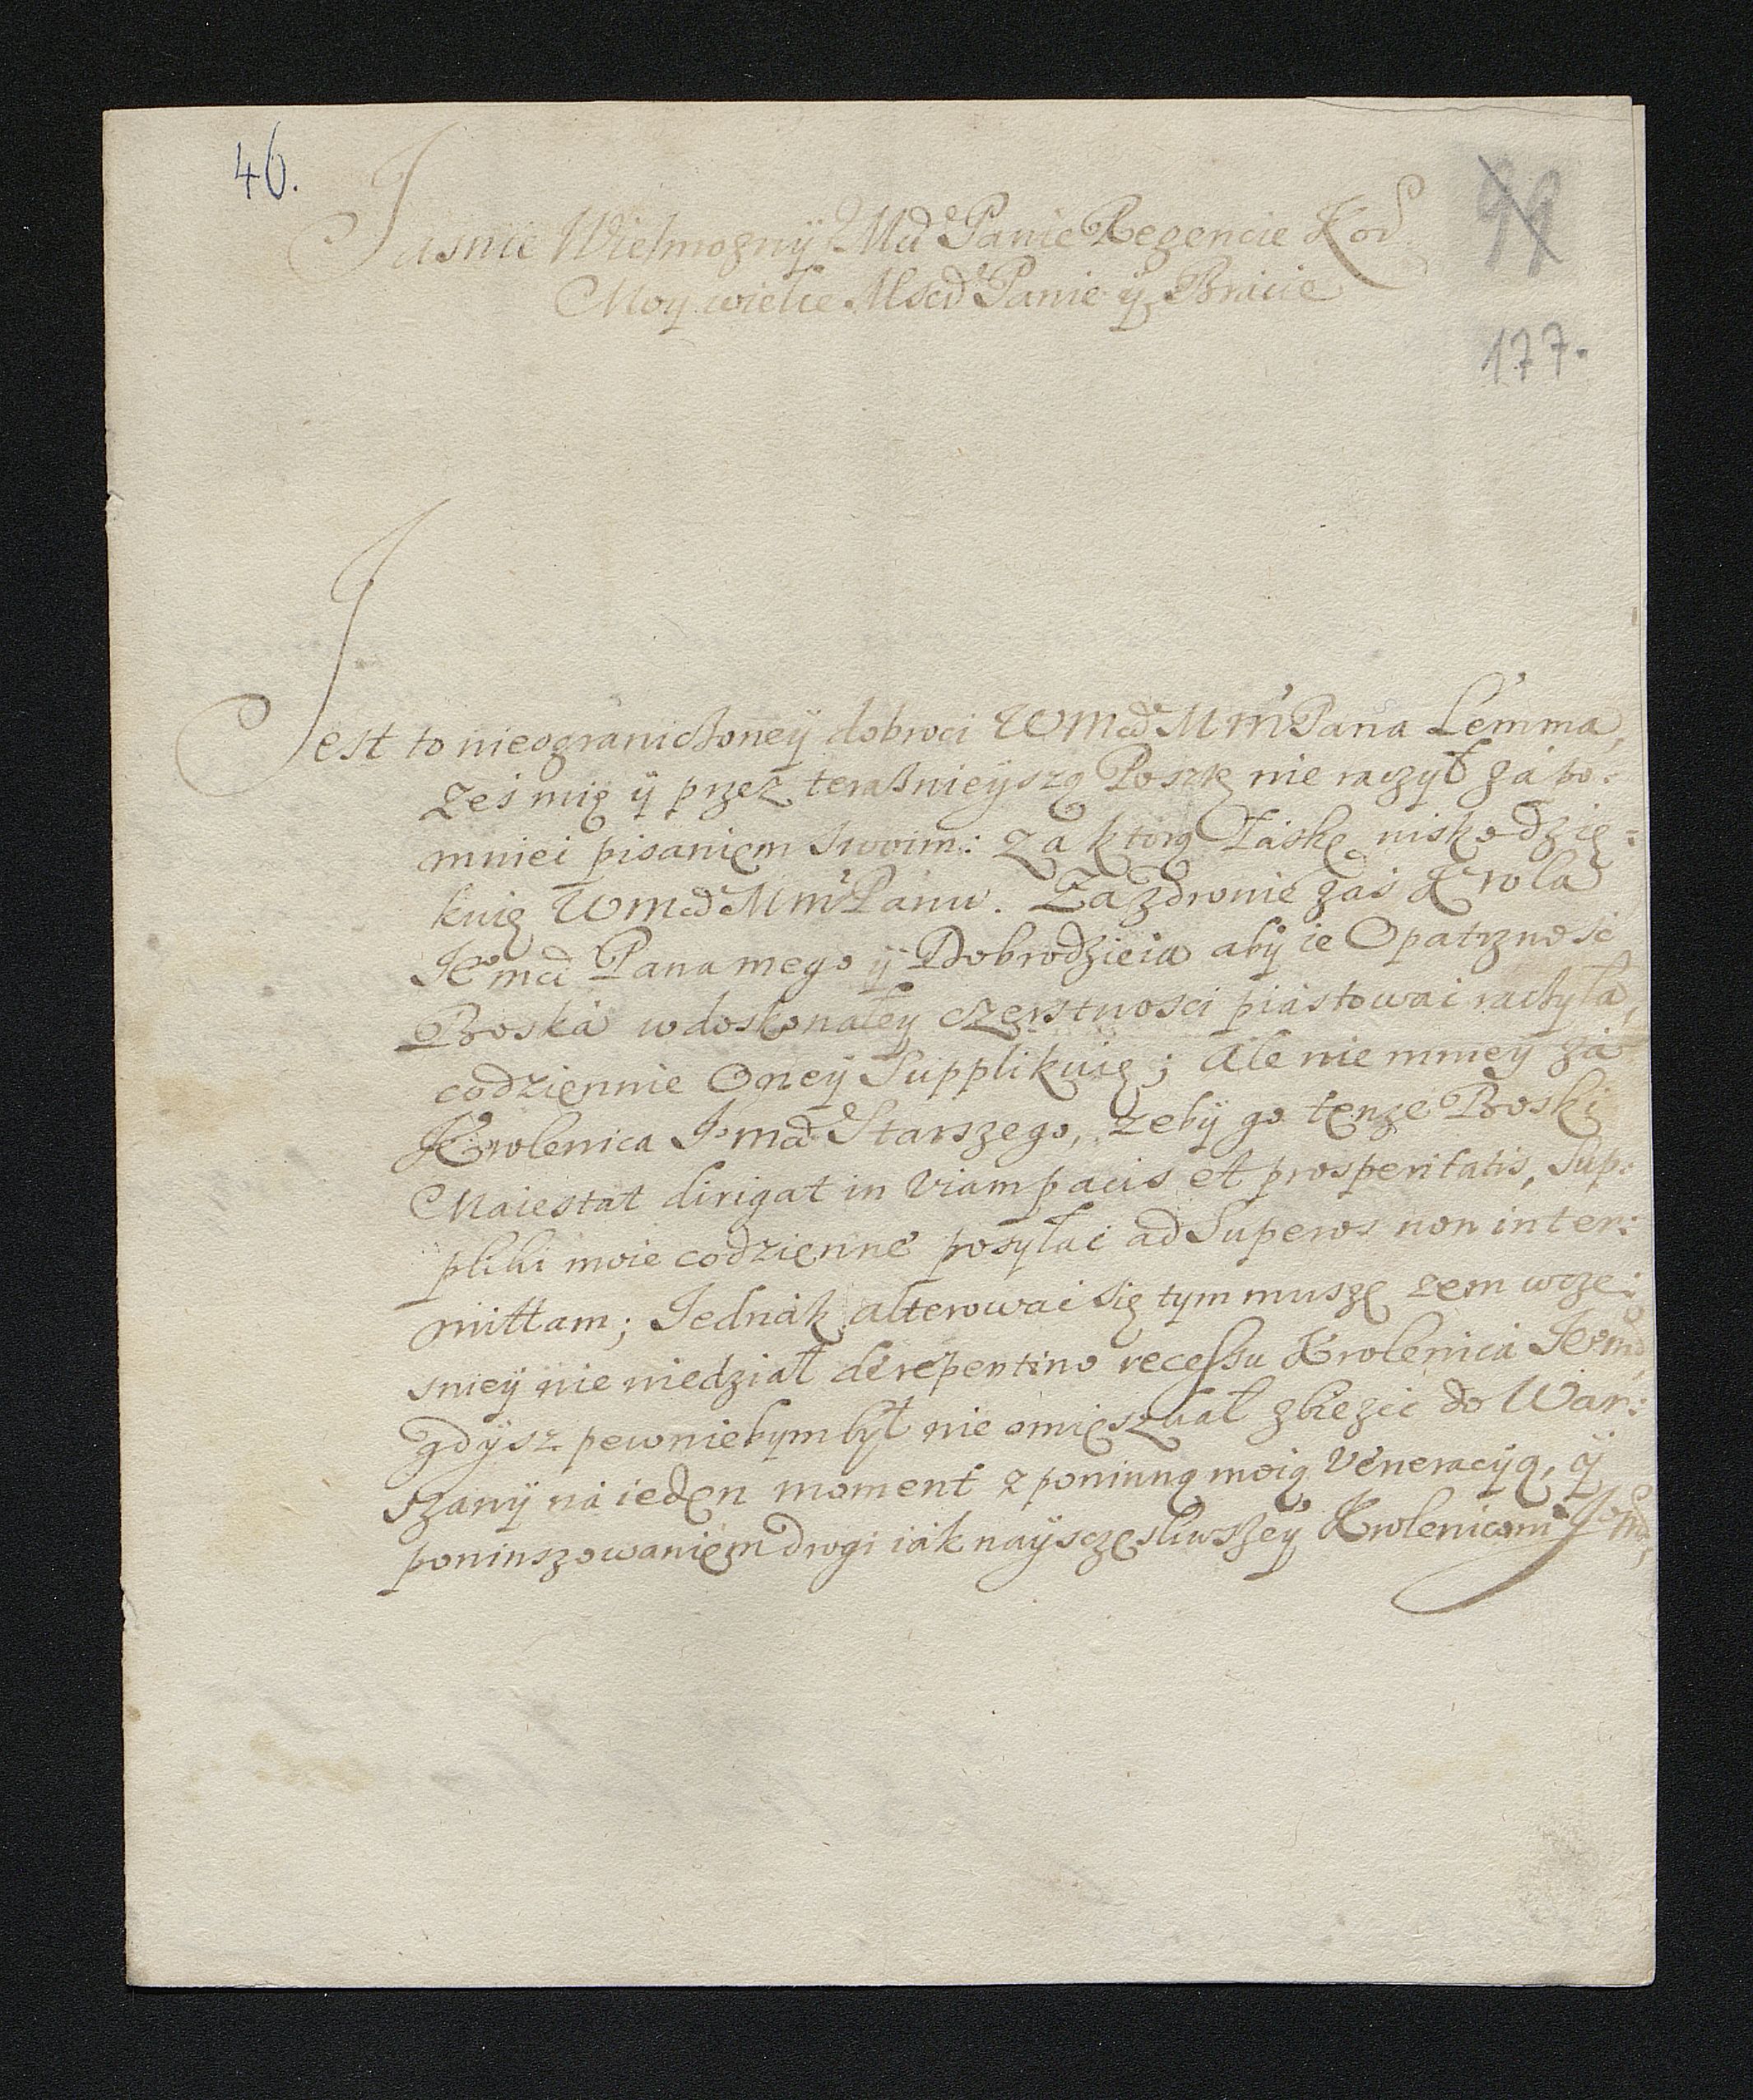 46.
Jasnie Wielmozny Mci Panie Regencie Kor
99
Moy wielce Mscd Panie ÿ Bracie
177.
Jest to nieograniczoneÿ dobroci WMcd Mm Pana Lemma,
zes mię ÿ przez teraznieÿszą Posztę nie raczył zápo:
mniec pisaniem swoim: za ktorą Łáskę nisko dzię:
kuię WMcd Mm Panu. Za zdrowie zaś Krola
Jeo mci Pana mego ÿ Dobrodzieia abÿ ie Opatrznosc
Boská w doskonałeÿ czerstwosci piástowac raczyła,
codziennie Oneÿ Supplikuię; ále nie mnieÿ zá
Krolewica Jo mci Starszego, zebÿ go tenze Boski
Maiestat dirigat in viam pacis et prosperitatis, Sup:
pliki moie codzienne posyłac ad Superos non inter:
mittam; Jednák alterowac się tym muszę zem wcze:
sniey nie wiedział de repentino recessu Krolewica Jeomci
gdÿsz pewnie bym był nie omięszkał zbiezec do War:
szawÿ ná ieden moment z powinną moią Veneracÿą, ÿ
powinszowaniem drogi iák naÿsczęsliwszeÿ Krolewicowi Jomci,